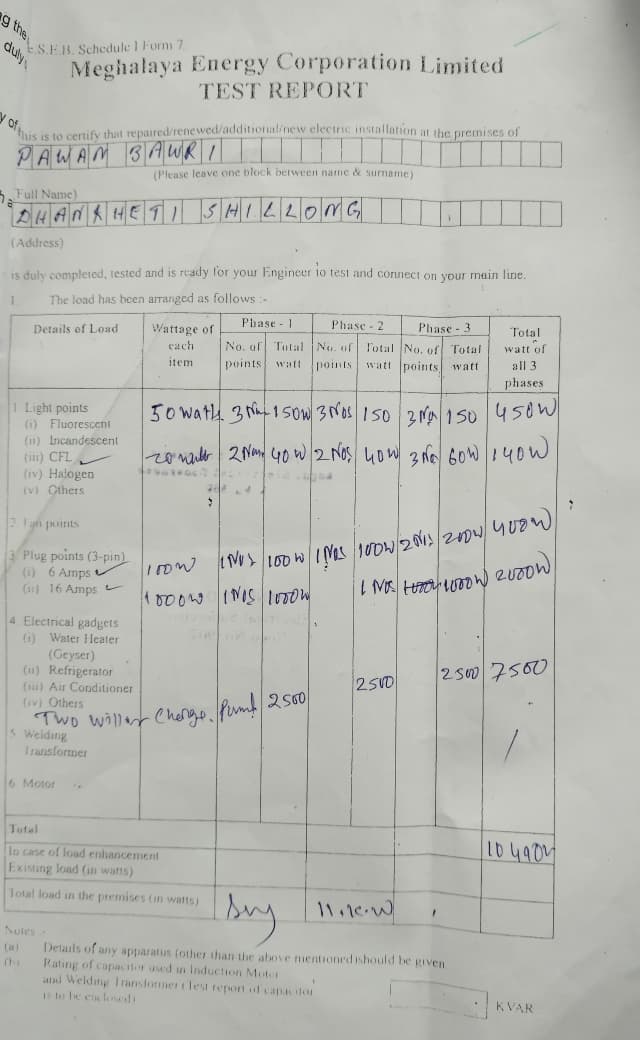 ng the
duly
y of
S.E.B. Schedule 1 Form 7
Meghalaya Energy Corporation Limited
TEST REPORT
This is to certify that repaired/renewed/additional/new electric installation at the premises of
PAWAN BAWRI
(Please leave one block between name & surname)
Full Name)
DHANKHETI SHILLONG
(Address)
is duly completed, tested and is ready for your Engineer to test and connect on your main line.
1. The load has been arranged as follows :-
Details of Load Wattage of each item Phase - 1 Phase - 2 Phase - 3 Total watt of all 3 phases
No. of points Total watt No. of points Total watt No. of points Total watt
1 Light points 50 watt 3 150W 3 Nos 150 3 150 450W
(i) Fluorescent
(ii) Incandescent
(iii) CFL 20 watt 2 40W 2 Nos 40W 3 No 60W 140W
(iv) Halogen
(v) Others
2. Fan points
3. Plug points (3-pin)
(i) 6 Amps 100W 1 Nos 100W 1 Nos 100W 2 Nos 200W 400W
(ii) 16 Amps 1000W 1 Nos 1000W 1 Nos 1000W 2000W
4 Electrical gadgets
(i) Water Heater
(Geyser)
(ii) Refrigerator
(iii) Air Conditioner
(iv) Others 2500 2500 2500 7500
Two Willar Charge. Pump
5 Welding
Transformer
6. Motor
Total 10490W
In case of load enhancement
Existing load (in watts)
Total load in the premises (in watts) Say 11.K.W
Notes :-
(a) Details of any apparatus (other than the above mentioned) should be given
(b) Rating of capacitor used in Induction Motor
and Welding Transformer (Test report of capacitor
is to be enclosed) KVAR